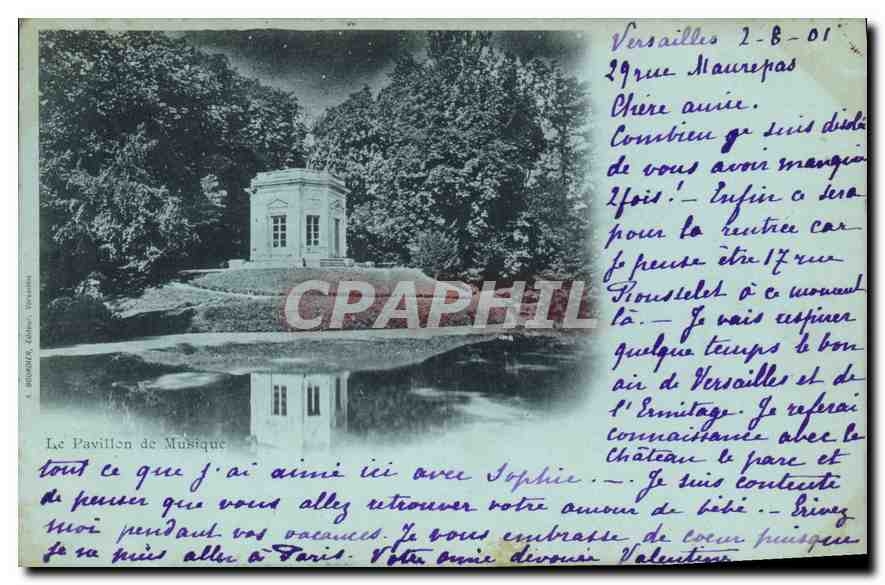 Versailles 2-8-01
29 rue Maurepas
Chère amie.
Combien je suis désolée
de vous avoir manquée
2 fois ! - Enfin ce sera
pour la rentrée car
je pense être 17 rue
Rousselet à ce moment
là. - Je vais respirer
quelque temps le bon
air de Versailles et de
l'Ermitage. Je referai
connaissance avec le
Château le parc et
tout ce que j'ai aimé ici avec Sophie. - . Je suis contente
de penser que vous allez retrouver votre amour de bébé. - Ecrivez
moi pendant vos vacances. Je vous embrasse de coeur puisque
je ne puis aller à Paris. Votre amie dévouée Valentine
Le Pavillon de Musique
A. BOURDIER, Editeur, Versailles
CAPHIL